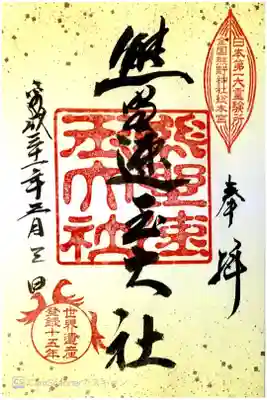 日本第一大霊験所
全国熊野神社総本宮
奉拝
熊野速玉大社
熊野速玉大社
平成三十一年三月三日
世界遺産
登録十五年